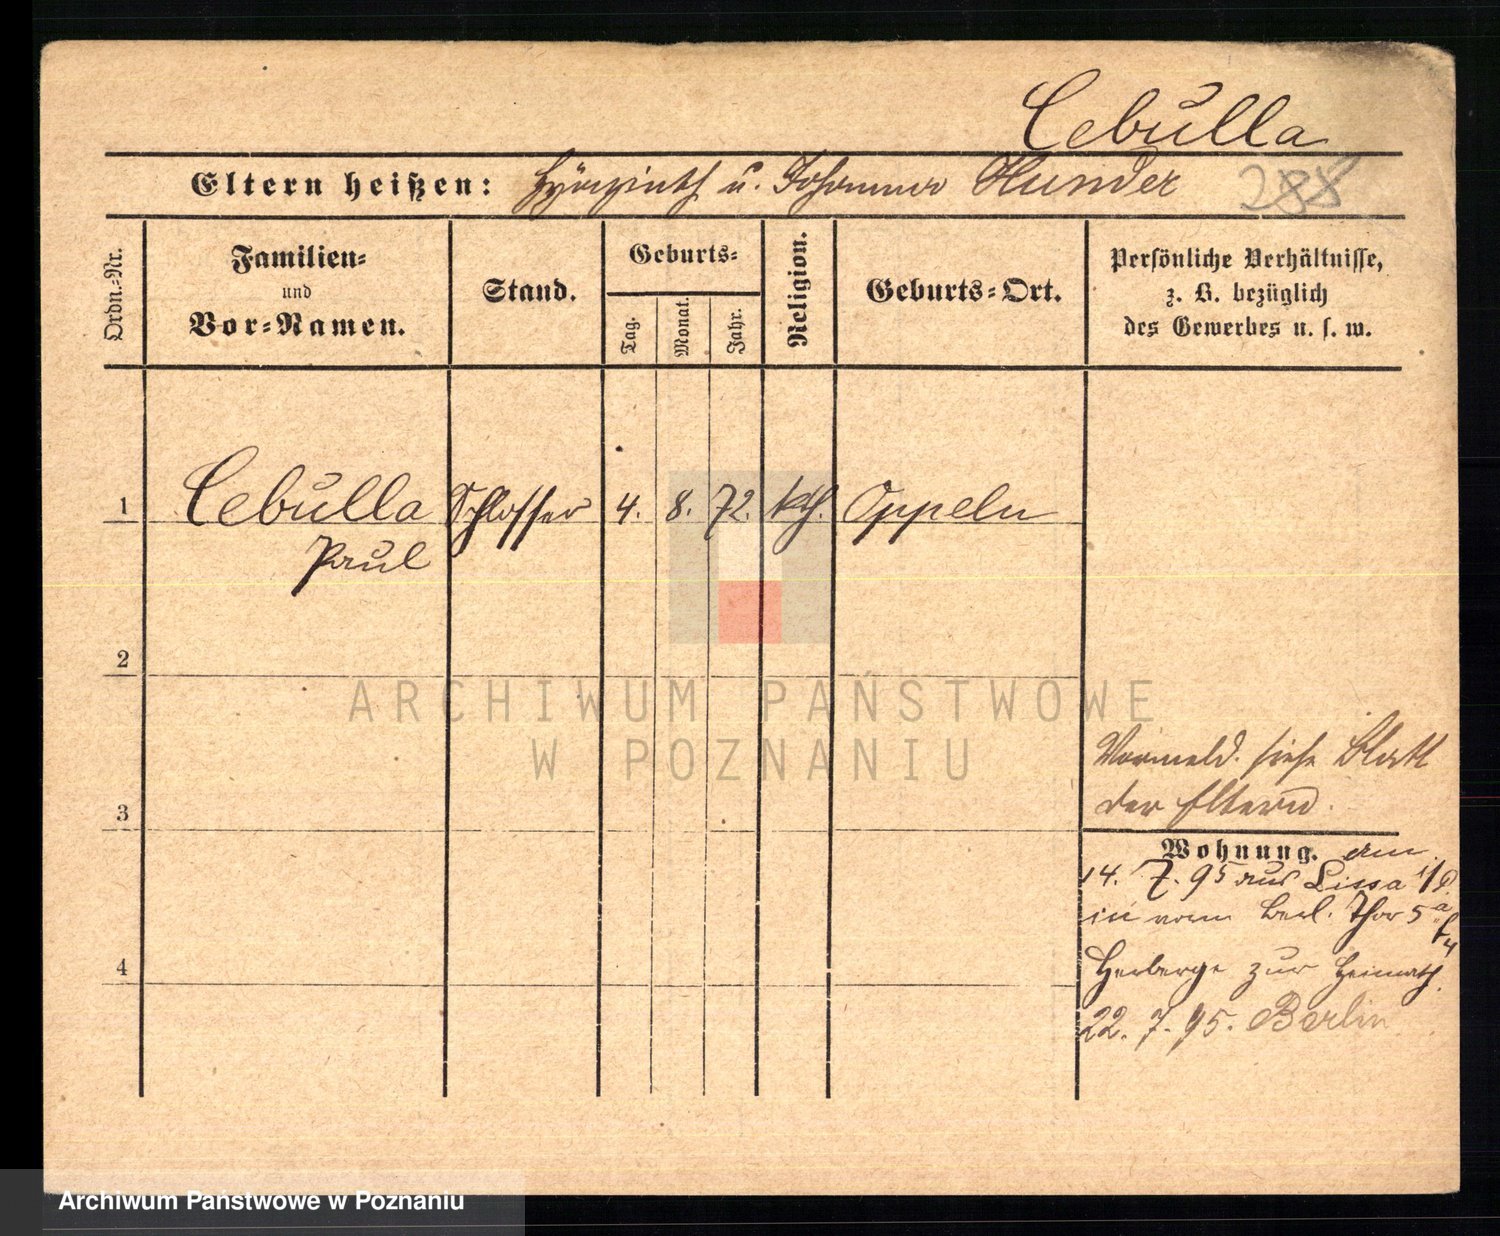 Cebulla
Eltern heißen: Hyazinth u. Johanna Hunder
288
Ordn.-Nr.
Familien-
und
Vor-Namen.
Stand.
Geburts-
Tag.
Monat.
Jahr.
Religion.
Geburts-Ort.
Persönliche Verhältnisse,
z. B. bezüglich
des Gewerbes u. s. w.
1 Cebulla Schlosser 4. 8. 72. kth. Oppeln
Paul
2
3
4
Vormeld. siehe Blatt
der Eltern.
Wohnung. am
14. 7. 95 aus Lissa i/P.
in vorm Berl. Thor 5a
Herberge zur Heimath.
22. 7. 95. Berlin
ARCHIWUM PAŃSTWOWE
W POZNANIU
Archiwum Państwowe w Poznaniu